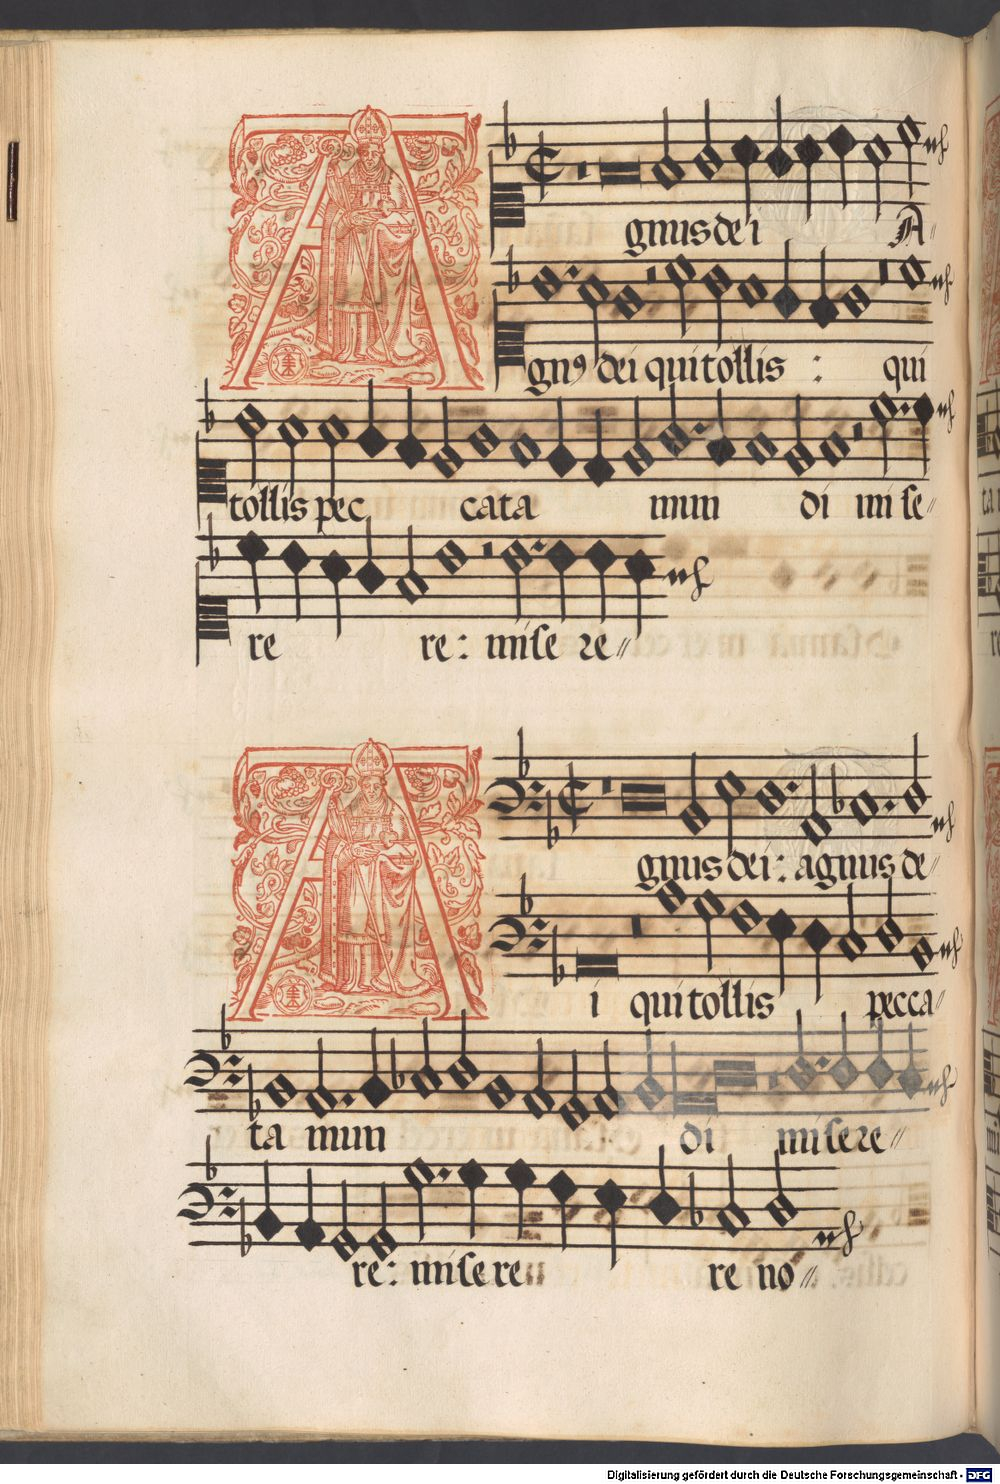 A gnus dei A〃
gnꝰ dei qui tollis : qui
tollis pec cata mun di mi se〃
re re : mise re〃
A gnus dei : agnus de〃
i qui tollis pecca〃
ta mun di misere〃
re : misere re no〃
Digitalisierung gefördert durch die Deutsche Forschungsgemeinschaft - DFG